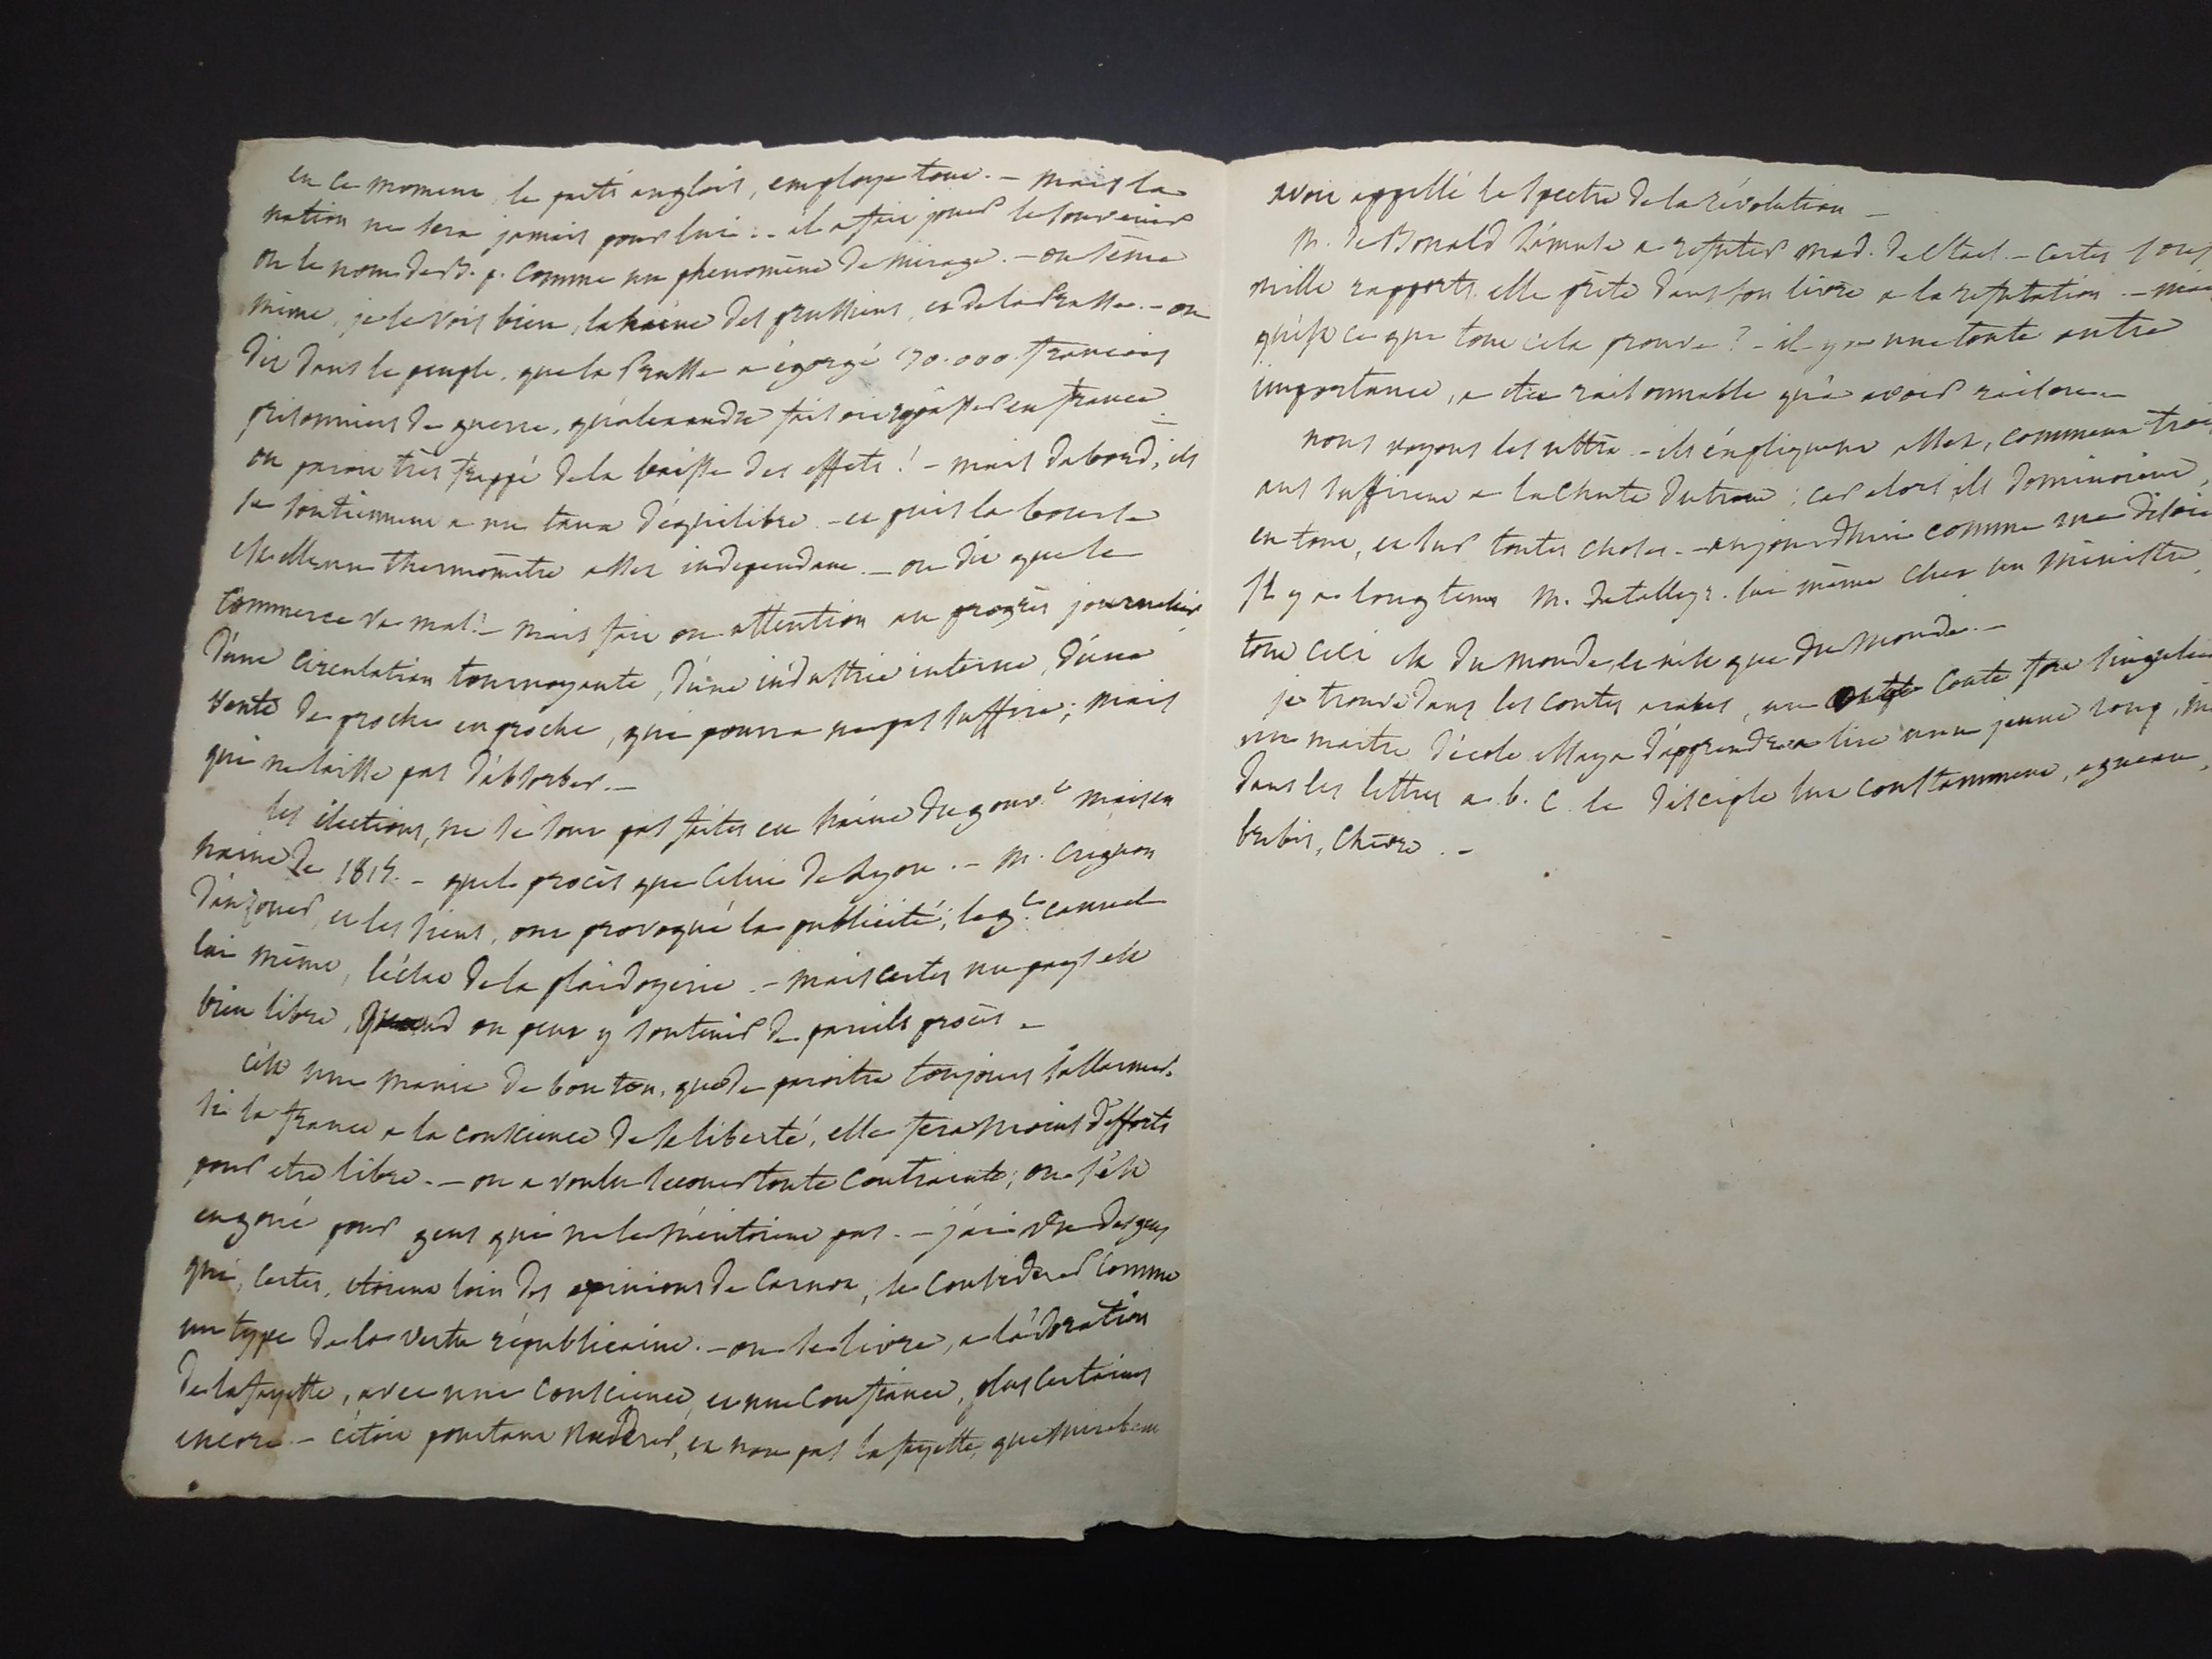 en ce moment le parti anglois, employe tout. – mais la
nation ne sera jamais pour lui. – il a fait jouer le souvenir
ou le nom de B. p. comme un phenomène de mirage. – on sème
même, je le vois bien, la haine des prussiens, et de la Prusse. – on
dit dans le peuple, que la Prusse a égorgé 70.000 francois
prisonniers de guerre, qu'alexandre faisoit repasser en france –
on paroit très frappé de la baisse des effets! – mais dabord, ils
se soutiennent a un taux d'équilibre – et puis la bourse
est elle un thermomètre assez independant. – on dit que le
commerce va mal? – mais fait on attention au progrès journalier
d'une circulation tournoyante, d'une industrie interne, d'une
vente de proche en proche, qui pourra ne pas suffire; mais
qui ne laisse pas d'absorber. –
les élections, ne se sont pas faites en haine du gouv.t mais en
haine de 1815. – quel procès que celui de Lyon. – M. Crignon
d'auzouer, et les siens, ont provoqué la publicité; le g.l canuel
lui même, l'éclat de la plaidoyerie. – mais certes un pays est
bien libre, quand on peut y soutenir de pareils procès –
c'est une manie de bon ton, que de paroitre toujours s'allarmer.
si la france a la conscience de sa liberté, elle fera moins d'efforts
pour etre libre. – on a voulu secouer toute contrainte; on s'est
engoué pour gens qui ne le méritoient pas. – j'ai vu des gens
qui, certes, étoient loin des opinions de Carnot, le considerer comme
un type de la vertu républicaine. – on se livre, a l'adoration
de lafayette, avec une conscience, et une confiance, plus certaines
encore – c'étoit pourtant et non pas lafayette, que mirabeau
avoit appellé le spectre de la révolution –
M. de Bonald s'amuse a refuter mad. de Stael. – certes sous
mille rapports elle prête dans son livre a la refutation. – mais
qu'est ce que tout cela prouve? – il y a une toute autre
importance, a etre raisonnable qu'a avoir raison –
nous voyons les ultra. – ils expliquent assez, comment trois
ans suffirent a la chute du trone; car alors ils dominoient,
en tout, et sur toutes choses. – aujourdhui comme me disoit
il y a longtems M. de talleyr. lui même chez un ministre,
tout ceci est du monde, et n'est que du monde. –
je trouve dans les contes arabes, un conte fort singulier
un maitre d'école essaya d'apprendre a lire a un jeune loup,
dans les lettres a. b. c. le disciple lut constamment, agneau,
brebis, chèvre. –